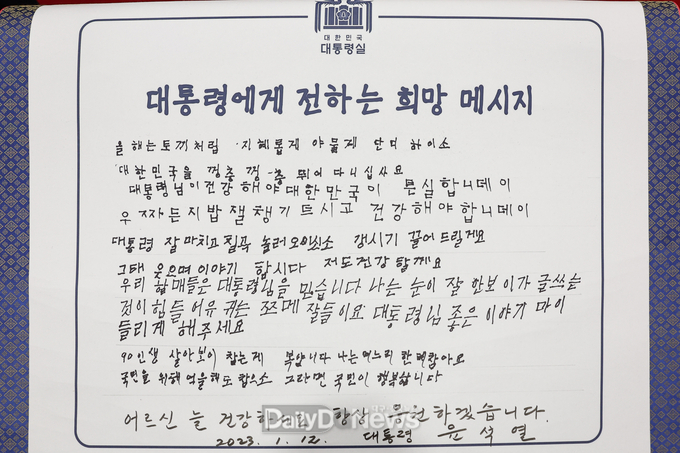 대한민국
대통령실
대통령에게 전하는 희망 메시지
올해는토끼처럼 지혜롭게 야물게 단디 하이소
대한민국을 껑충껑충 뛰어 다니십시요
대통령님이건강 해야대한만국이 튼실합니데이
우짜든지밥잘챙기드시고 건강해야합니데이
대통령 잘마치고칠곡 놀러오이소 갱시기 끌어드릴게요
그때 웃으며이야기 합시다 저도건강 할께요
우리 할매들은 대통령님을 믿습니다 나는 눈이 잘 안보이가 글쓰는
것이힘들어유 귀는 쪼매 잘들이요 대통령님 좋은이야기 마이
들리게 해주세요
90인생 살아보이 참는게 복입니다 나는며느리 한테참아요
국민을 위해 억울해도 참으소 그라면 국민이 행복합니다
어르신 늘 건강하세요 항상 하겠습니다.
2023. 1. 12. 대통령 윤석열
DailyDgNews